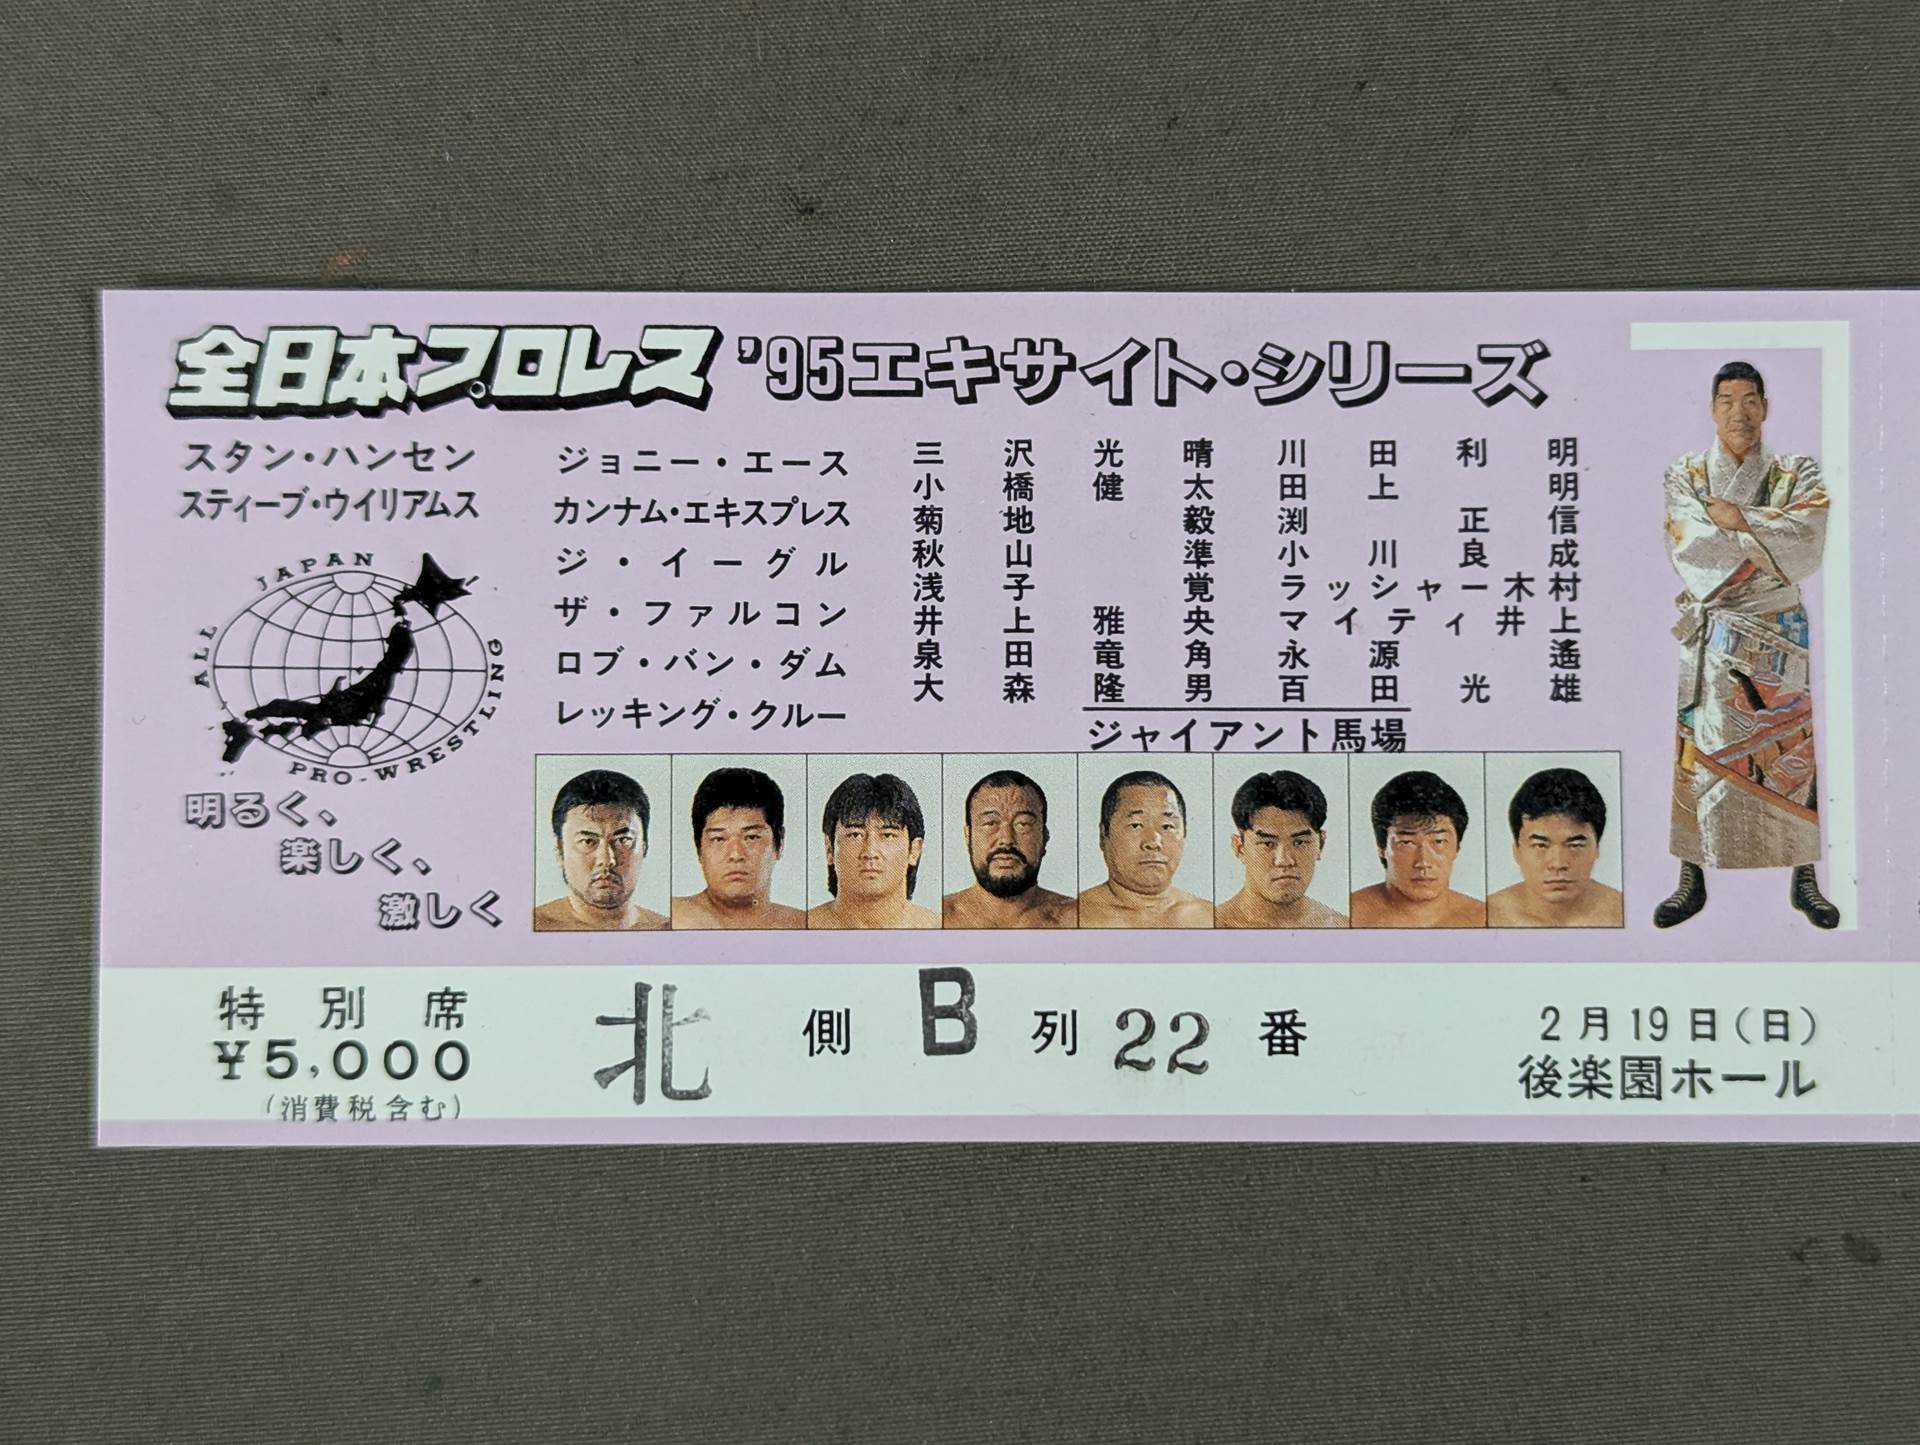 全日本プロレス '95エキサイト・シリーズ
スタン・ハンセン
スティーブ・ウイリアムス
ALL JAPAN PRO-WRESTLING
明るく、
楽しく、
激しく
ジョニー・エース
カンナム・エキスプレス
ジ・イーグル
ザ・ファルコン
ロブ・バン・ダム
レッキング・クルー
三沢光晴 川田利明
小橋健太 田上明
菊地毅 渕正信
秋山準 小川良成
浅子覚 ラッシャー木村
井上雅央 マイティ井上
泉田竜角 永源遙
大森隆男 百田光雄
ジャイアント馬場
特別席
¥5,000
(消費税含む)
北側 B列 22番
2月19日(日)
後楽園ホール